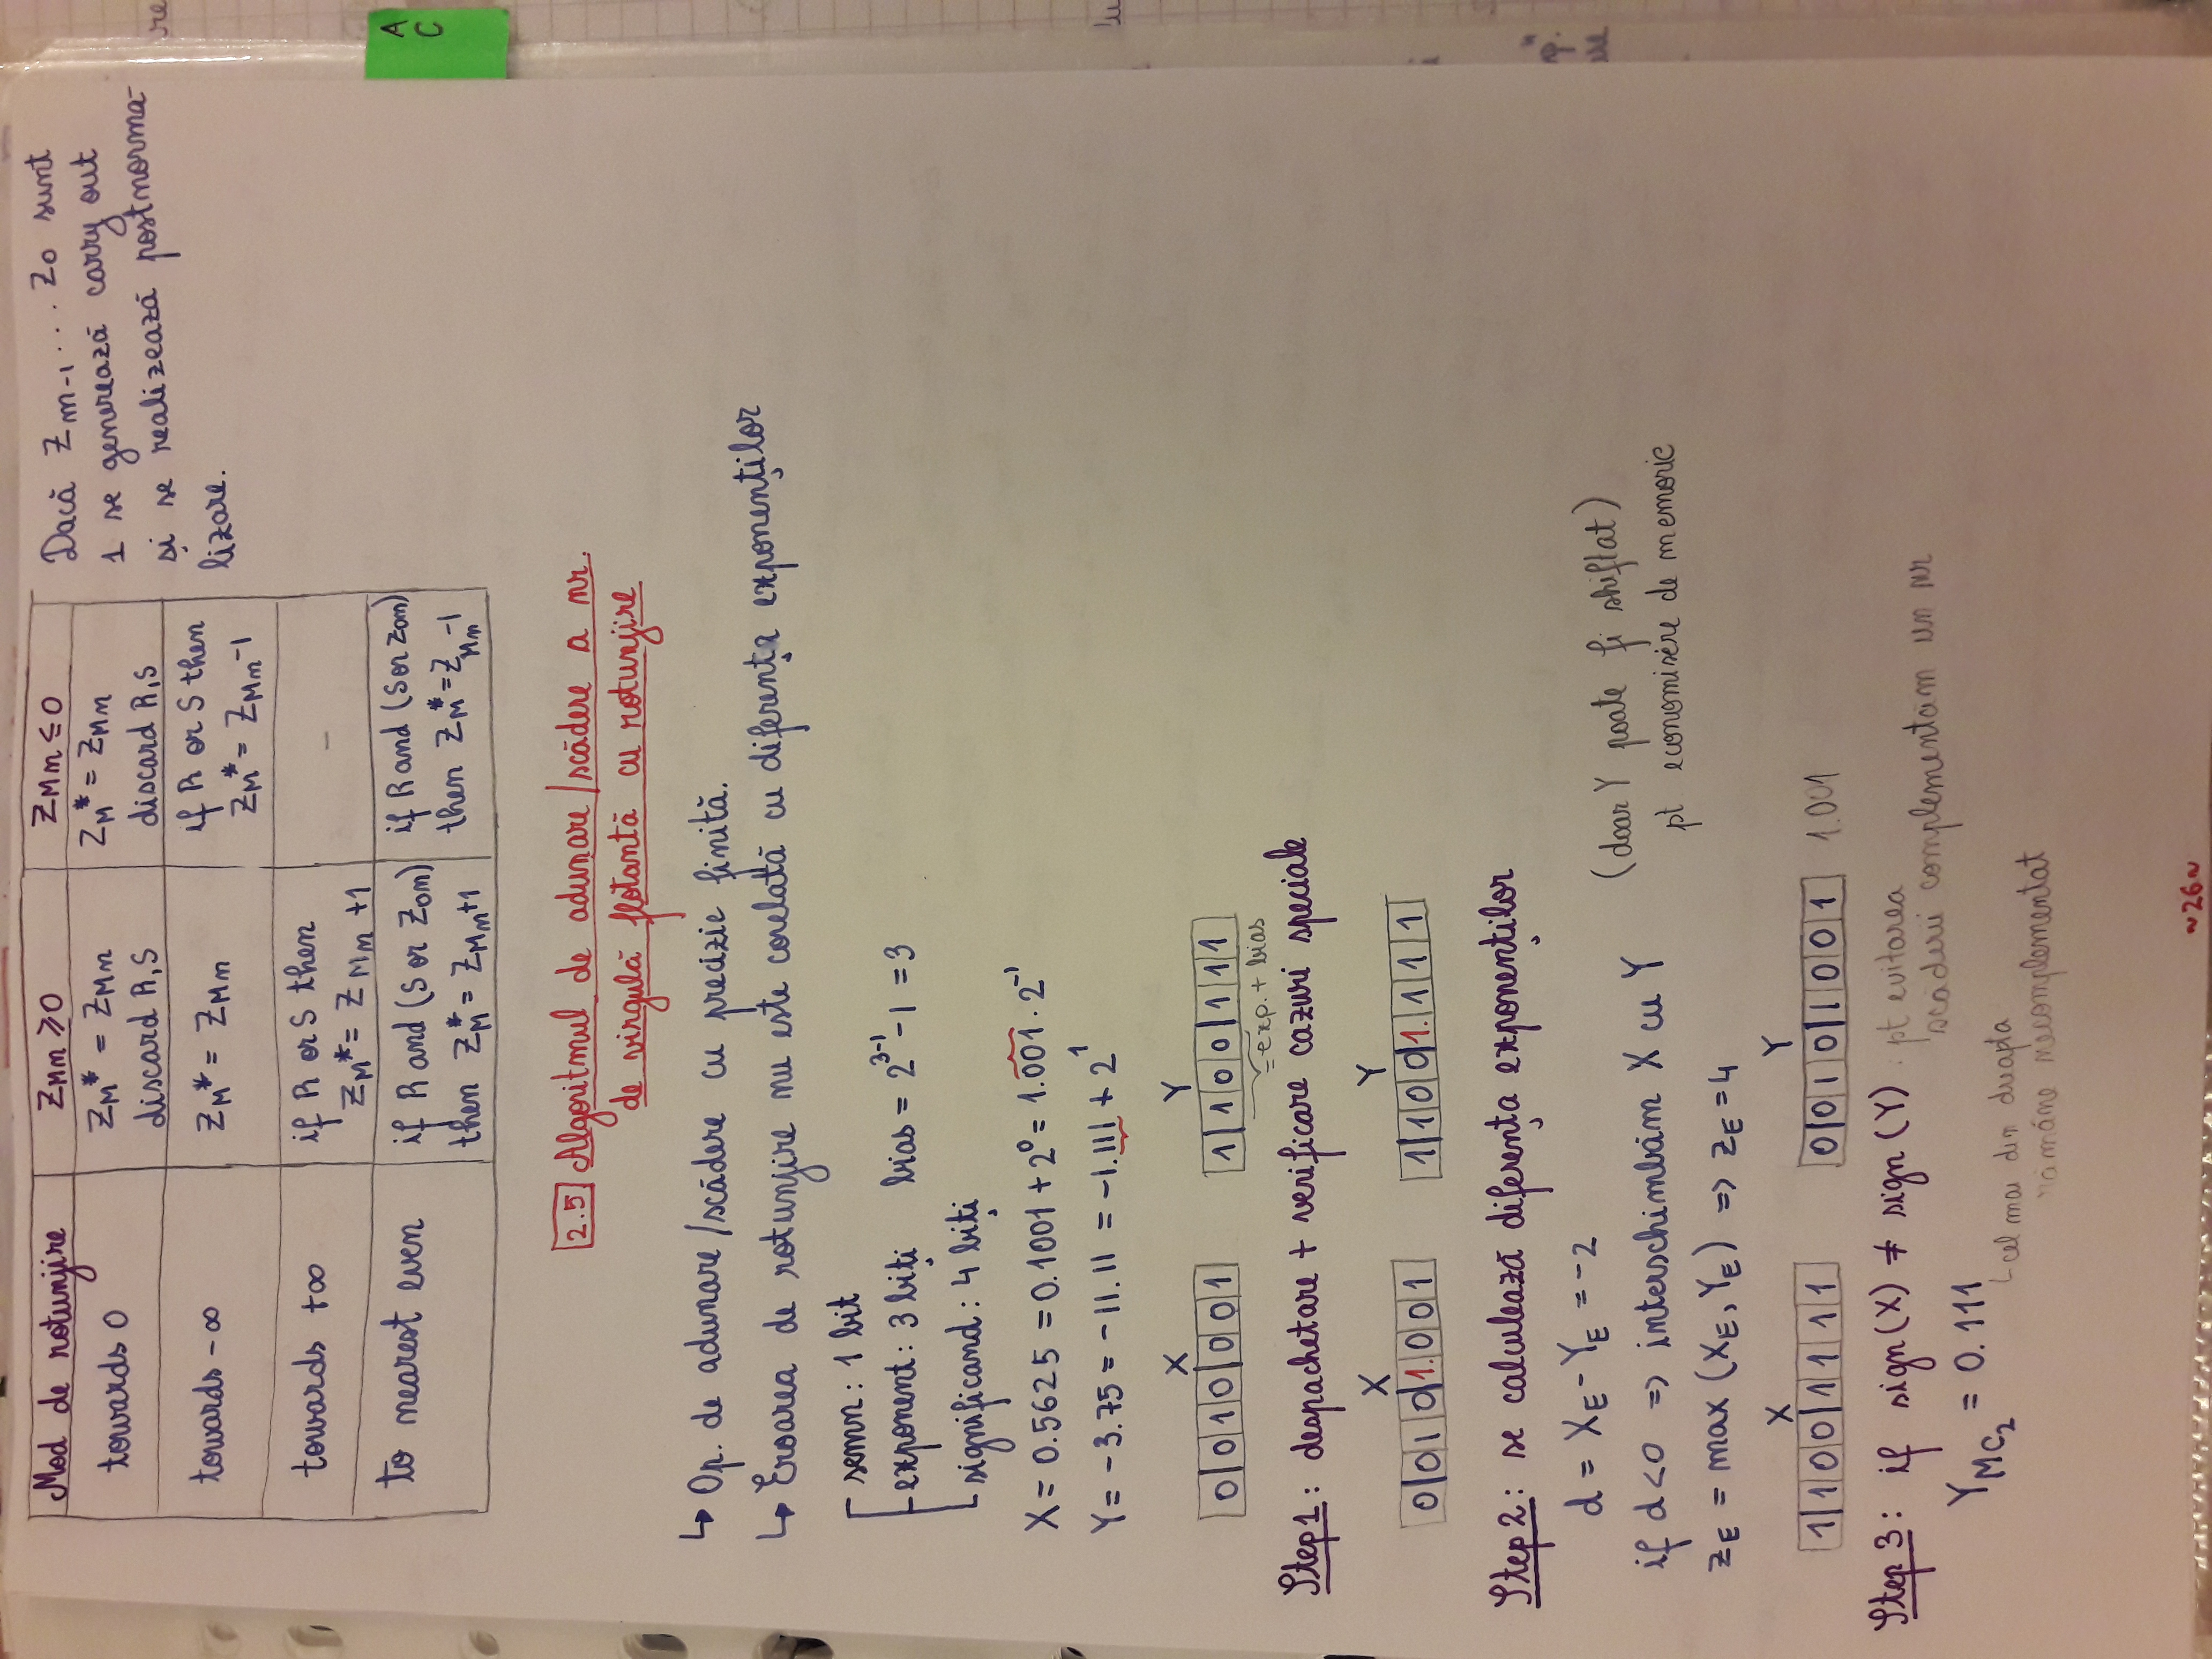 Mod de rotunjire Z_Mn ≥ 0 Z_Mn ≤ 0
towards 0 Z_M* = Z_Mn Z_M* = Z_Mn
discard R, S discard R, S
towards -∞ Z_M* = Z_Mn if R or S then
Z_M* = Z_Mn -1
towards +∞ if R or S then -
Z_M* = Z_Mn +1
to nearest even if R and (S or Z_0n) if R and (S or Z_0n)
then Z_M* = Z_Mn +1 then Z_M* = Z_Mn -1
Dacă Z_m-1 ... Z_0 sunt
1 se generează carry out
și se realizează postnorma-
lizare.
A
C
2.5 Algoritmul de adunare/scădere a nr.
de virgulă flotantă cu rotunjire
↳ Op. de adunare/scădere cu precizie finită.
↳ Eroarea de rotunjire nu este corelată cu diferența exponenților
semn: 1 bit
exponent: 3 biți bias = 2^(3-1) - 1 = 3
significand: 4 biți
X = 0.5625 = 0.1001 + 2^0 = 1.001 · 2^-1
Y = -3.75 = -11.11 = -1.111 + 2^1
X Y
0 0 1 0 0 0 1 1 1 0 0 1 1 1
= exp. + bias
Step 1: despachetare + verificare cazuri speciale
X Y
0 0 1 0 1. 0 0 1 1 1 0 0 1. 1 1 1
Step 2: se calculează diferența exponenților
d = X_E - Y_E = -2
if d < 0 => interschimbăm X cu Y
(doar Y poate fi shiftat)
pt economisire de memorie
z_E = max (X_E, Y_E) => z_E = 4
X Y
1 1 0 0 1 1 1 1 0 0 1 0 1 0 0 1 1.001
Step 3: if sign(X) ≠ sign(Y) : pt evitarea
scăderii complementăm un nr
Y_MC2 = 0.111
cel mai din dreapta
rămâne necomplementat
~26~